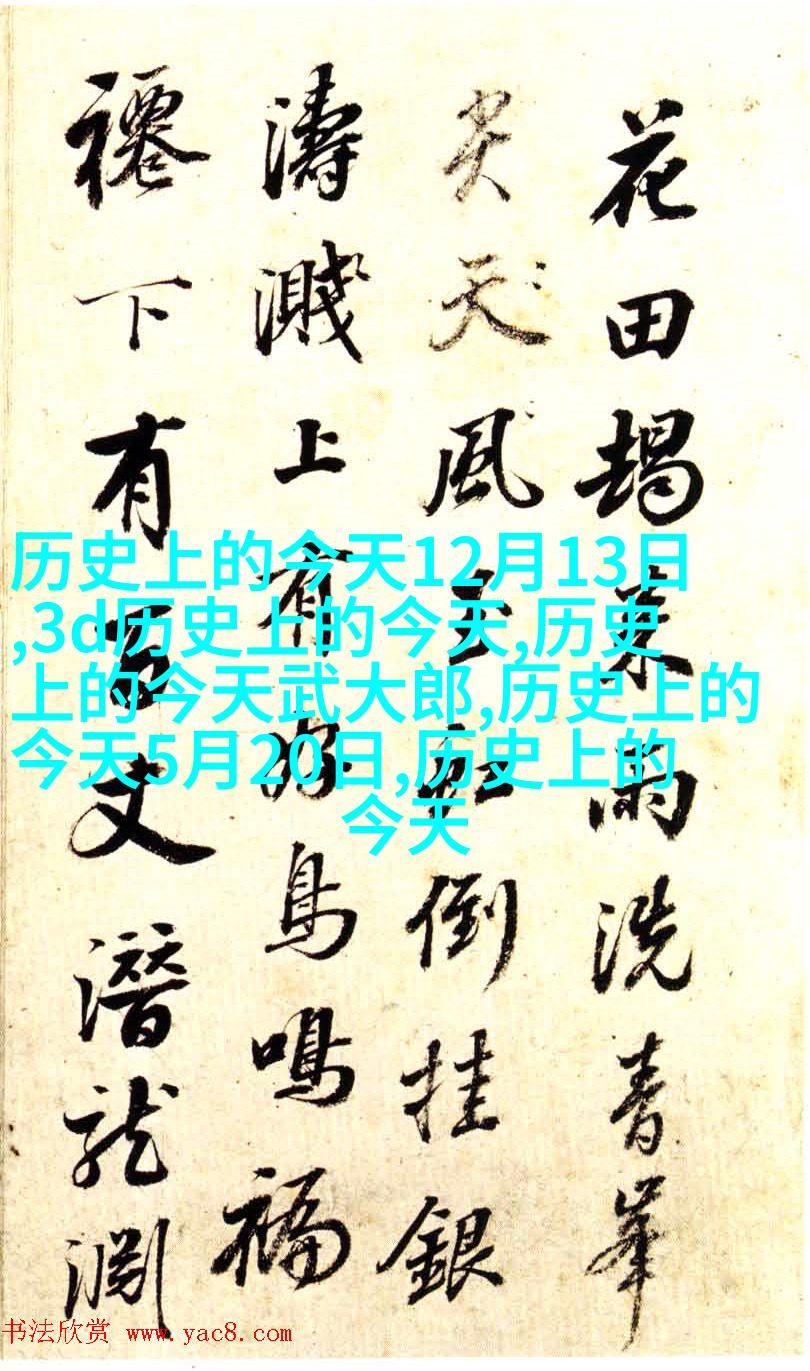 花田朅来雨洗青峯
尖天風玉虹倒挂銀
濤濺上有珍鳥鳴福
下有百丈潛龍淵
历史上的今天12月13日
,3d历史上的今天,历史
上的今天武大郎,历史上的
今天5月20日,历史上的
今天
书法欣赏 www.yac8.com